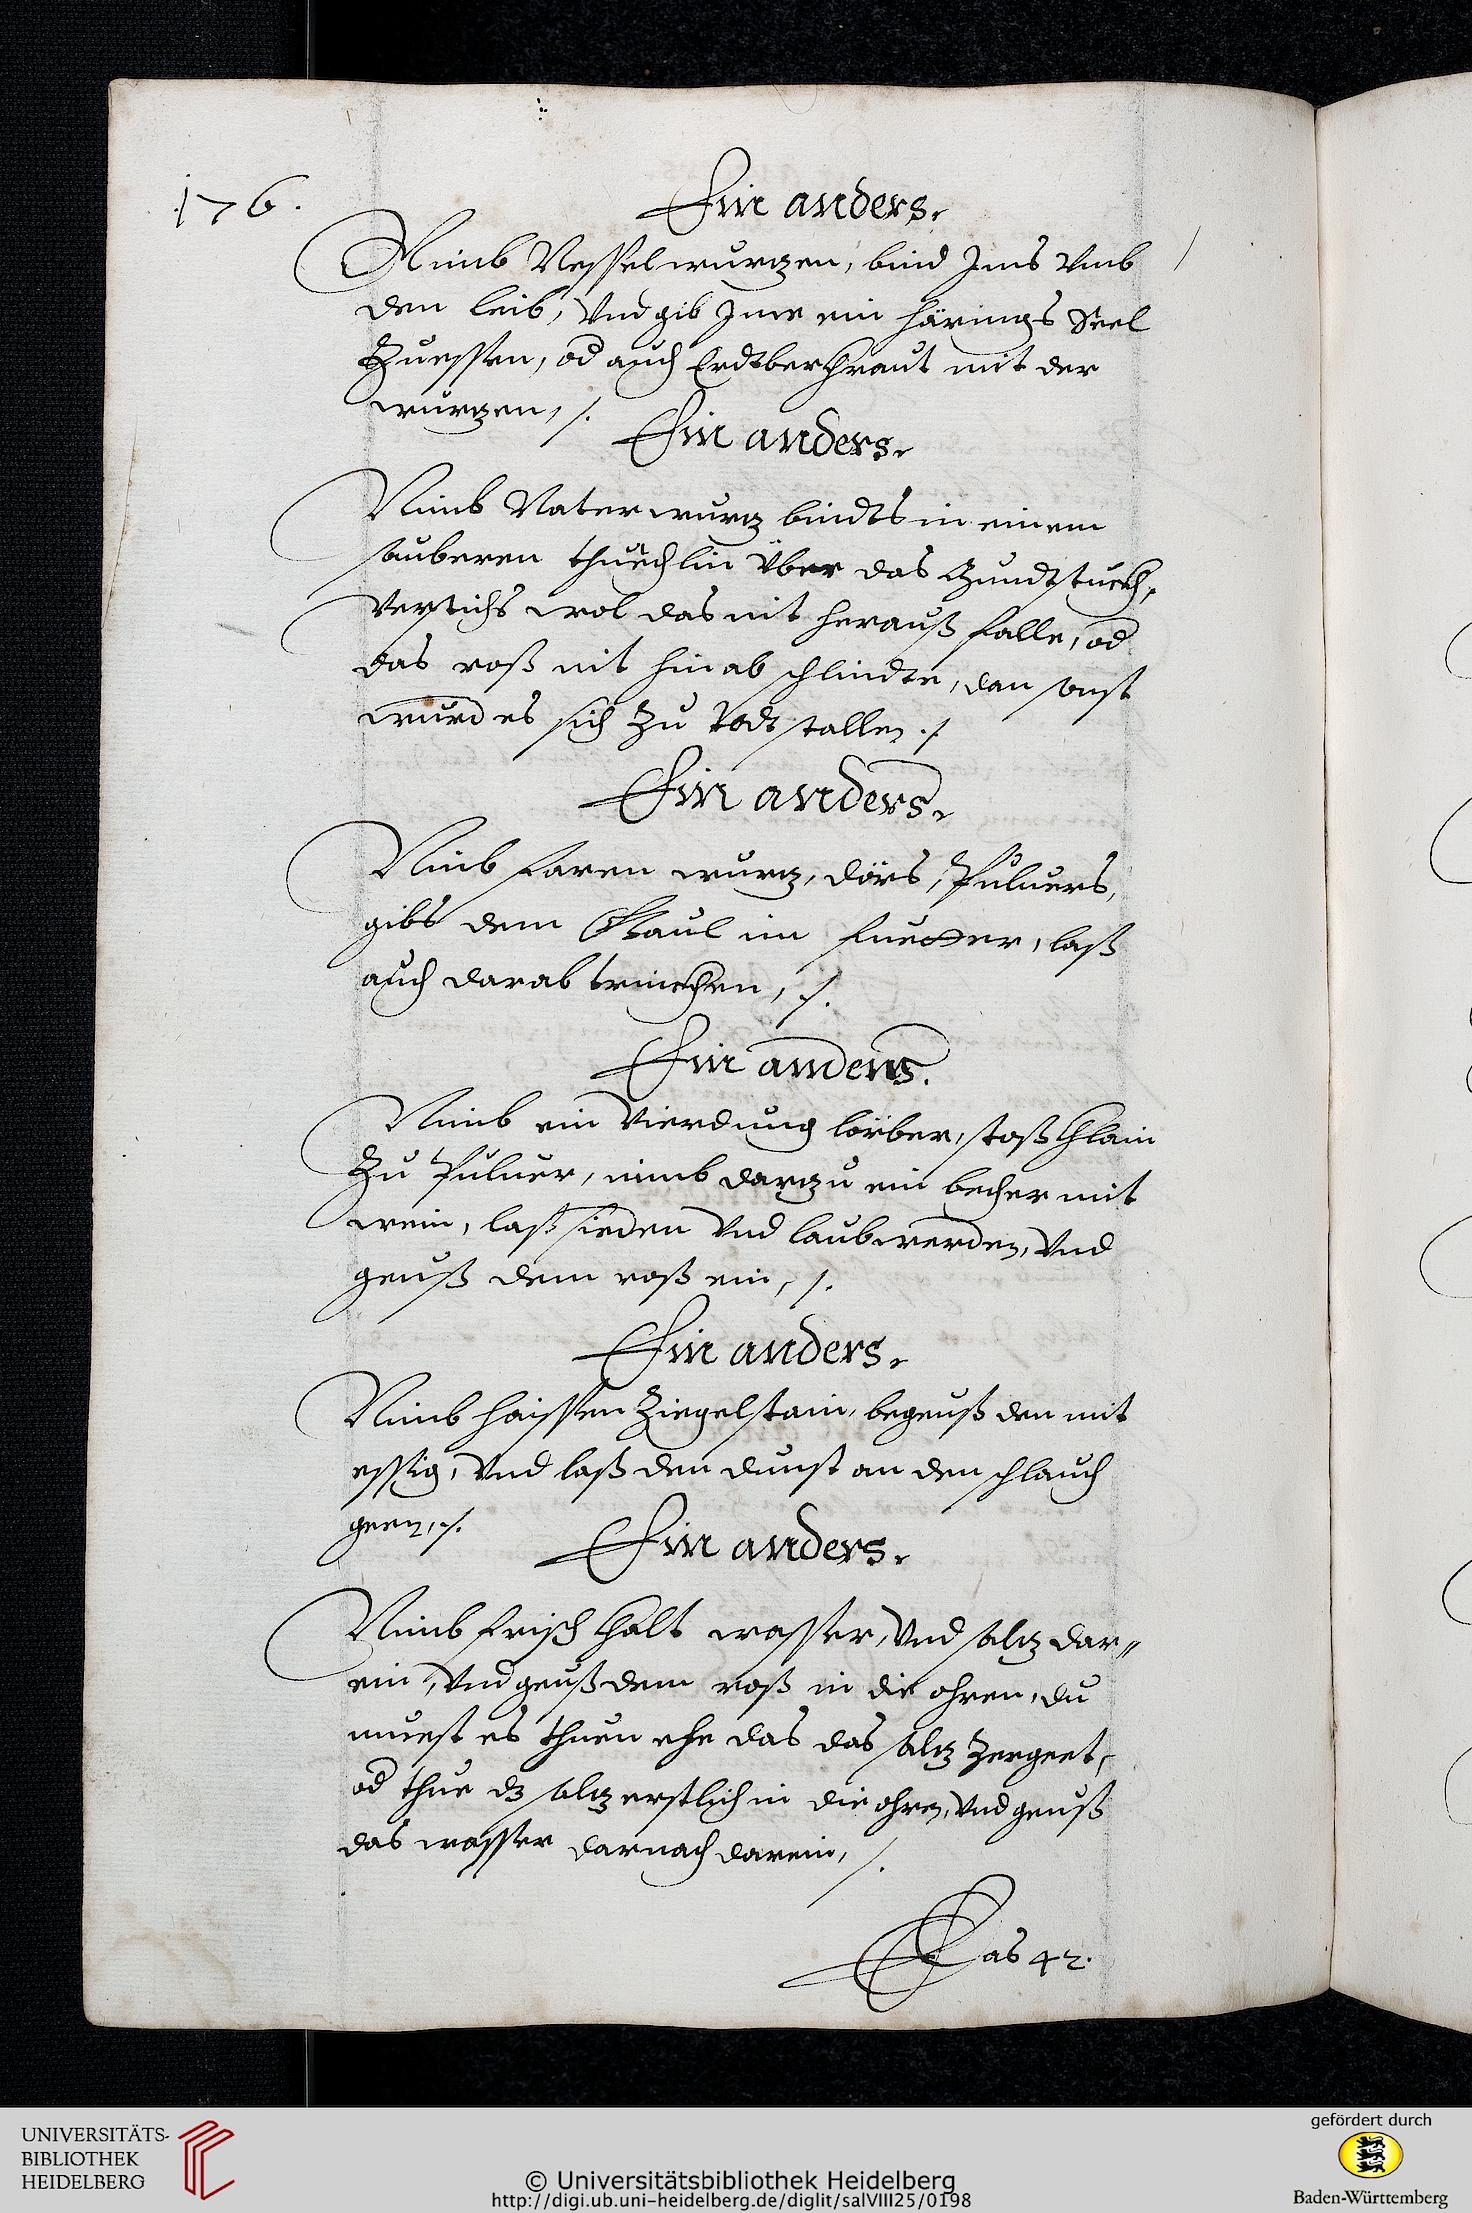 176.
Ein anders.
Nimb Nesselwurgzen, bind Jms vmb
den leib, vnd gib Jme ein härings Seel
Zuessen, od auch Erdtberkhraut mit der
wurgzen, ./.
Ein anders.
Nimb Naterwurgz bindts in einem
sauberen thuechlin Über das Mundtstuckh,
Versichs wol das nit herauß falle, od
das roß nit hinab schlindte, dan sonst
wurd es sich Zu Todt stallen ./.
Ein anders.
Nimb faren wurgz, dörs, Puluers,
gibs dem Gaul im fuetter, laß
auch darab trinckhen, ./.
Ein anders.
Nimb ein Vierdung lörber, stoß khlain
Zu Puluer, nimb dargzu ein becher mit
wein, laß sieden Vnd laub werden, Vnd
geuß dem roß ein, ./.
Ein anders.
Nimb haissen Ziegelstain, begeuß den mit
essig, Vnd laß den dunst an den schlauch
geen, ./.
Ein anders.
Nimb frisch khalt wasser, Vnd salgz dar„
ein, Vnd geuß dem roß in die ohren, du
muest es thuen ehe das das salgz Zergeet,
od thue dz salgz erstlich in die ohren, Vnd geuß
das wasser darnach darein, ./.
Das 42.
UNIVERSITÄTS-
BIBLIOTHEK
HEIDELBERG
© Universitätsbibliothek Heidelberg
http://digi.ub.uni-heidelberg.de/diglit/salVIII25/0198
gefördert durch
Baden-Württemberg